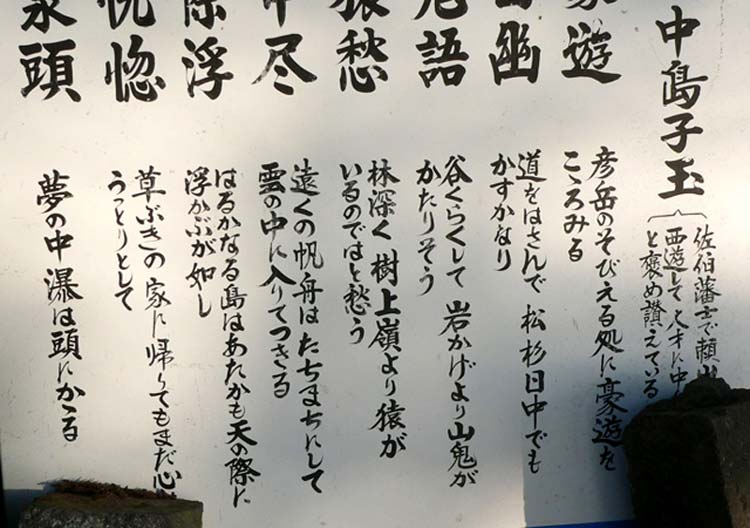 中島子玉
佐伯藩士で頼山
西遊して
と褒め讃えている
豪遊
彦岳のそびえる処に豪遊を
こゝろみる
幽
道をはさんで 松杉日中でも
かすかなり
鬼語
谷くらくして 岩かげより山鬼が
かたりそう
猿愁
林深く 樹上嶺より猿が
いるのではと愁う
中尽
遠くの帆舟はたちまちにして
雲の中に入りてつきる
際浮
はるかなる島はあたかも天の際に
浮かぶが如し
恍惚
草ぶきの家に帰りてもまだ心
うっとりとして
泉頭
夢の中瀑は頭にかゝる